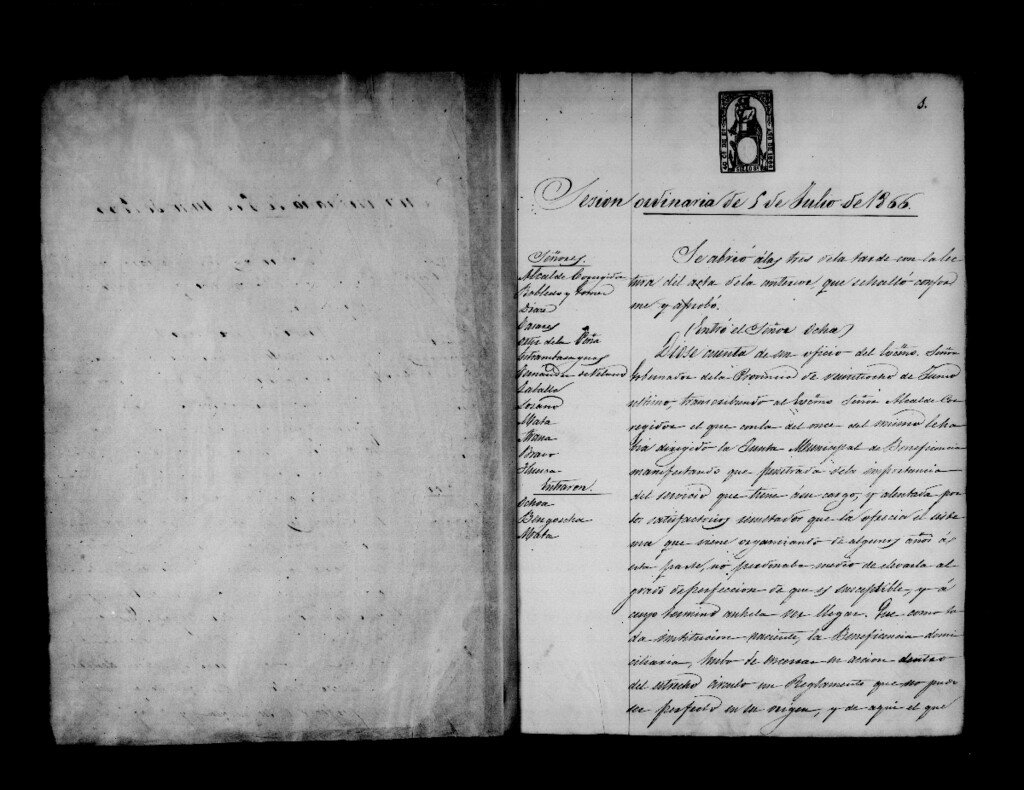 1.
Sesion ordinaria de 5 de Julio de 1866.
Señores.
Alcalde Corregidor
Robledo y
Diaz
Casares
de la Peña
Entrambasaguas
Fernandez de Velasco
Zaballa
Lozano
Mata
Arana
Bravo
Entraron.
Ochoa
Bengoechea
Mata
Se abrió á las tres de la tarde con la lec
tura del acta de la anterior, que se halló confor
me y aprobó.
(Entró el Señor Ochoa)
Diose cuenta de un oficio del Escmo. Señor
Gobernador de la Provincia de veintiocho de Junio
ultimo, transcribiendo al Escmo. Señor Alcalde Cor
regidor el que con la del once del mismo le ha
bia dirigido la Junta Municipal de Beneficencia
manifestando que penetrada de la importancia
del servicio que tiene á su cargo, y alentada por
los satisfactorios resultados que la ofrecia el siste
ma que viene organizando de algunos años á
esta parte, no perdonaba medio de elevarla al
grado de perfeccion de que es susceptible, y á
cuyo termino anhela ver llegue. Que como to
da institucion naciente, la Beneficencia domi
ciliaria, hubo de encerrar su accion dentro
del estrecho circulo un Reglamento que no pudo
ser perfecto en su origen, y de aqui el que